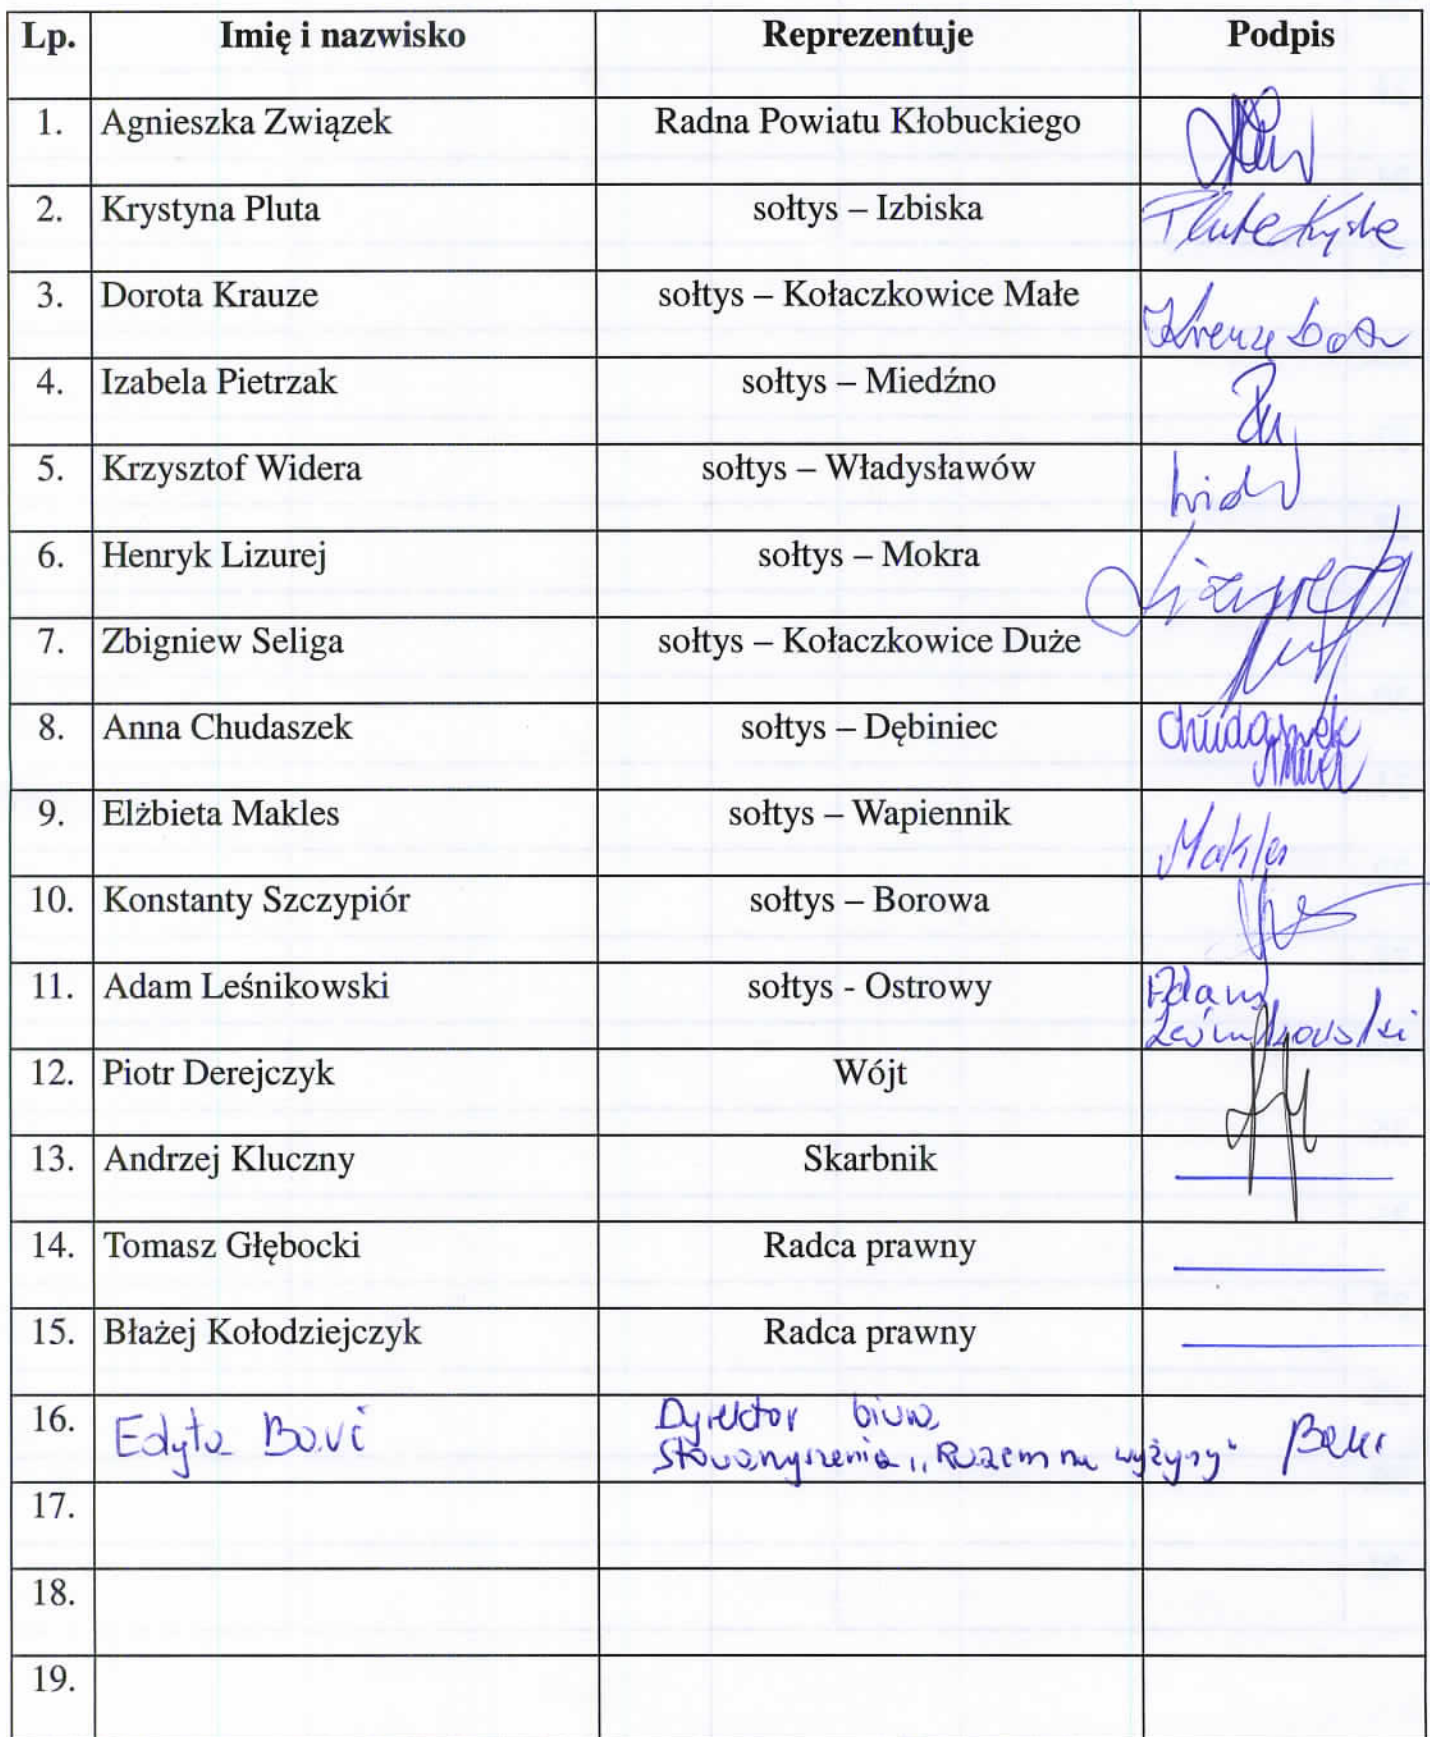 Lp. Imię i nazwisko Reprezentuje Podpis
1. Agnieszka Związek Radna Powiatu Kłobuckiego
2. Krystyna Pluta sołtys – Izbiska
3. Dorota Krauze sołtys – Kołaczkowice Małe
4. Izabela Pietrzak sołtys – Miedźno
5. Krzysztof Widera sołtys – Władysławów
6. Henryk Lizurej sołtys – Mokra
7. Zbigniew Seliga sołtys – Kołaczkowice Duże
8. Anna Chudaszek sołtys – Dębiniec Chudaszek
Anna
9. Elżbieta Makles sołtys – Wapiennik Makles
10. Konstanty Szczypiór sołtys – Borowa
11. Adam Leśnikowski sołtys - Ostrowy Adam
Leśnikowski
12. Piotr Derejczyk Wójt
13. Andrzej Kluczny Skarbnik
14. Tomasz Głębocki Radca prawny
15. Błażej Kołodziejczyk Radca prawny
16. Edyta Dyrektor biura
Stowarzyszenia „Razem na wyżyny"
17.
18.
19.